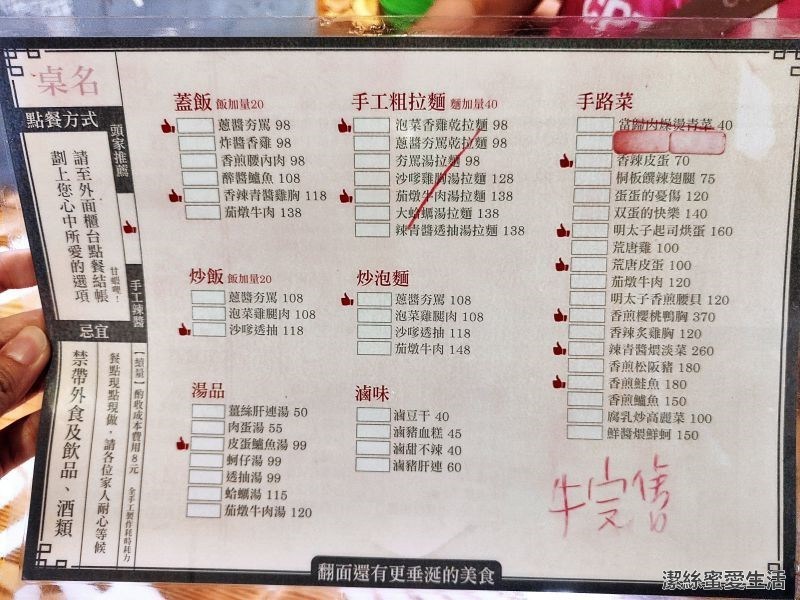 桌名
點餐方式
請至外面櫃台點餐結帳
劃上您心中所愛的選項
甘蝦哩！
頭家推薦
手工辣醬
【酌量】酌收成本費用8元
全手工製作耗時耗力
忌宜
餐點現點現做，請各位家人耐心等候
禁帶外食及飲品、酒類
蓋飯 飯加量20
蔥醬夯罵 98
炸醬香雞 98
香煎腰內肉 98
醉醬鱸魚 108
香辣青醬雞胸 118
茄燉牛肉 138
炒飯 飯加量20
蔥醬夯罵 108
泡菜雞腿肉 108
沙嗲透抽 118
湯品
薑絲肝連湯 50
肉蛋湯 55
皮蛋鱸魚湯 99
蚵仔湯 99
透抽湯 99
蛤蠣湯 115
茄燉牛肉湯 120
手工粗拉麵 麵加量40
泡菜香雞乾拉麵 98
蔥醬夯罵乾拉麵 98
夯罵湯拉麵 98
沙嗲雞胸湯拉麵 128
茄燉牛肉湯拉麵 138
大蛤蠣湯拉麵 138
辣青醬透抽湯拉麵 138
炒泡麵
蔥醬夯罵 108
泡菜雞腿肉 108
沙嗲透抽 118
茄燉牛肉 148
滷味
滷豆干 40
滷豬血糕 45
滷甜不辣 40
滷豬肝連 60
手路菜
當歸肉燥燙青菜 40
香辣皮蛋 70
桐板饌辣翅腿 75
蛋蛋的憂傷 120
双蛋的快樂 140
明太子起司烘蛋 160
荒唐雞 100
荒唐皮蛋 100
茄燉牛肉 120
明太子香煎腰貝 120
香煎櫻桃鴨胸 370
香辣炙雞胸 120
辣青醬煨淡菜 260
香煎松阪豬 180
香煎鮭魚 180
香煎鱸魚 150
腐乳炒高麗菜 100
鮮醬煨鮮蚵 150
牛完售
翻面還有更垂涎的美食
潔絲蜜愛生活